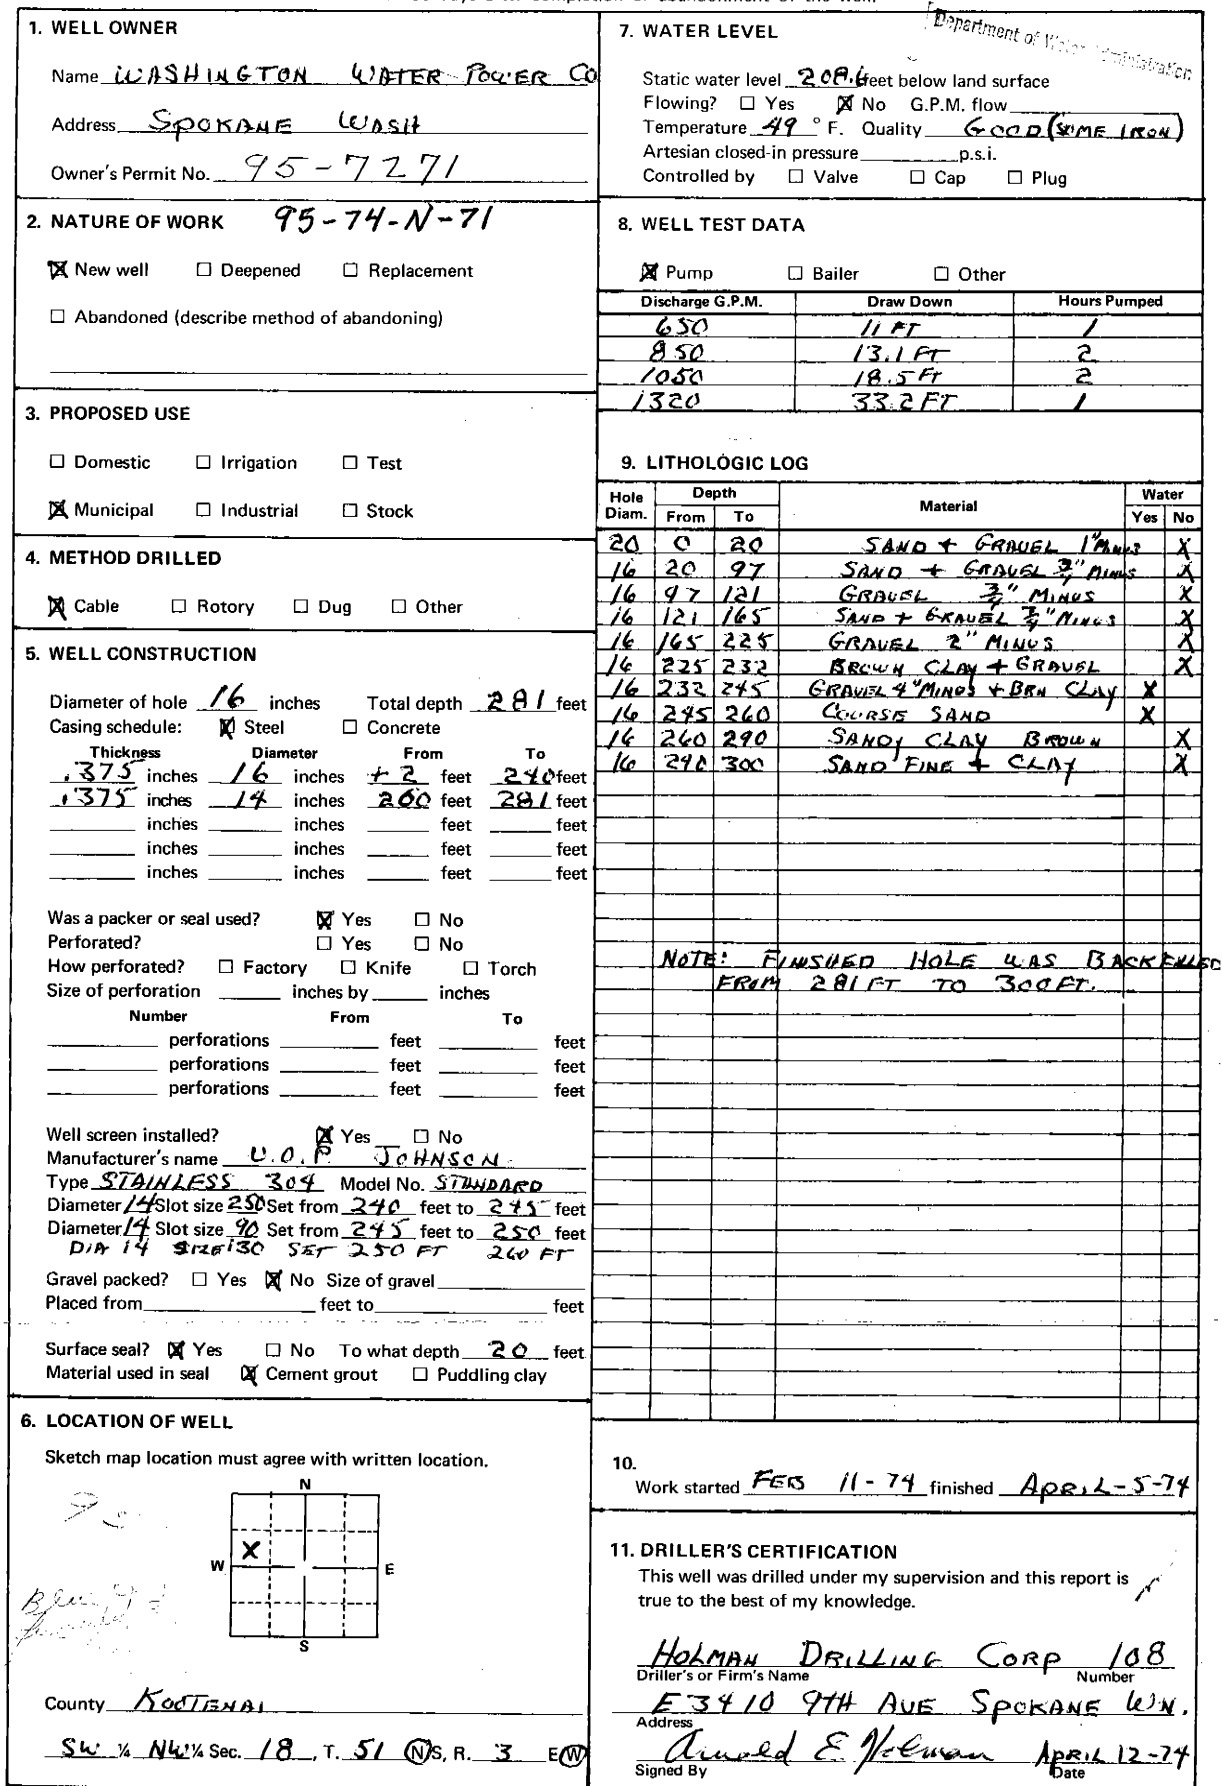 Department of Water Administration
1. WELL OWNER
Name WASHINGTON WATER POWER CO
Address SPOKANE WASH
Owner's Permit No. 95-7271
2. NATURE OF WORK 95-74-N-71
☒ New well ☐ Deepened ☐ Replacement
☐ Abandoned (describe method of abandoning)
3. PROPOSED USE
☐ Domestic ☐ Irrigation ☐ Test
☒ Municipal ☐ Industrial ☐ Stock
4. METHOD DRILLED
☒ Cable ☐ Rotory ☐ Dug ☐ Other
5. WELL CONSTRUCTION
Diameter of hole 16 inches Total depth 281 feet
Casing schedule: ☒ Steel ☐ Concrete
Thickness Diameter From To
.375 inches 16 inches +2 feet 240 feet
.375 inches 14 inches 260 feet 281 feet
inches inches feet feet
inches inches feet feet
inches inches feet feet
Was a packer or seal used? ☒ Yes ☐ No
Perforated? ☐ Yes ☐ No
How perforated? ☐ Factory ☐ Knife ☐ Torch
Size of perforation inches by inches
Number From To
perforations feet feet
perforations feet feet
perforations feet feet
Well screen installed? ☒ Yes ☐ No
Manufacturer's name U.O.P. JOHNSON
Type STAINLESS 304 Model No. STANDARD
Diameter 14 Slot size 250 Set from 240 feet to 245 feet
Diameter 14 Slot size 90 Set from 245 feet to 250 feet
DIA 14 SIZE 130 SET 250 FT 260 FT
Gravel packed? ☐ Yes ☒ No Size of gravel
Placed from feet to feet
Surface seal? ☒ Yes ☐ No To what depth 20 feet
Material used in seal ☒ Cement grout ☐ Puddling clay
6. LOCATION OF WELL
Sketch map location must agree with written location.
N
X
W E
S
County KOOTENAI
SW ¼ NW ¼ Sec. 18, T. 51 N/S, R. 3 E/W
7. WATER LEVEL
Static water level 208.6 feet below land surface
Flowing? ☐ Yes ☒ No G.P.M. flow
Temperature 49 ° F. Quality GOOD (SOME IRON)
Artesian closed-in pressure p.s.i.
Controlled by ☐ Valve ☐ Cap ☐ Plug
8. WELL TEST DATA
☒ Pump ☐ Bailer ☐ Other
Discharge G.P.M. Draw Down Hours Pumped
650 11 FT 1
850 13.1 FT 2
1050 18.5 FT 2
1320 33.2 FT 1
9. LITHOLOGIC LOG
Hole Diam. Depth From To Material Water Yes No
20 0 20 SAND + GRAVEL 1" MINUS X
16 20 97 SAND + GRAVEL 3/4" MINUS X
16 97 121 GRAVEL 3/4" MINUS X
16 121 165 SAND + GRAVEL 3/4" MINUS X
16 165 225 GRAVEL 2" MINUS X
16 225 232 BROWN CLAY + GRAVEL X
16 232 245 GRAVEL 4" MINUS + BRN CLAY X
16 245 260 COURSE SAND X
16 260 290 SANDY CLAY BROWN X
16 290 300 SAND FINE + CLAY X
NOTE: FINISHED HOLE WAS BACKFILLED
FROM 281 FT TO 300 FT.
10.
Work started FEB 11-74 finished APRIL-5-74
11. DRILLER'S CERTIFICATION
This well was drilled under my supervision and this report is
true to the best of my knowledge.
HOLMAN DRILLING CORP 108
Driller's or Firm's Name Number
E 3410 9TH AVE SPOKANE WN.
Address
Arnold E Holman APRIL 12-74
Signed By Date